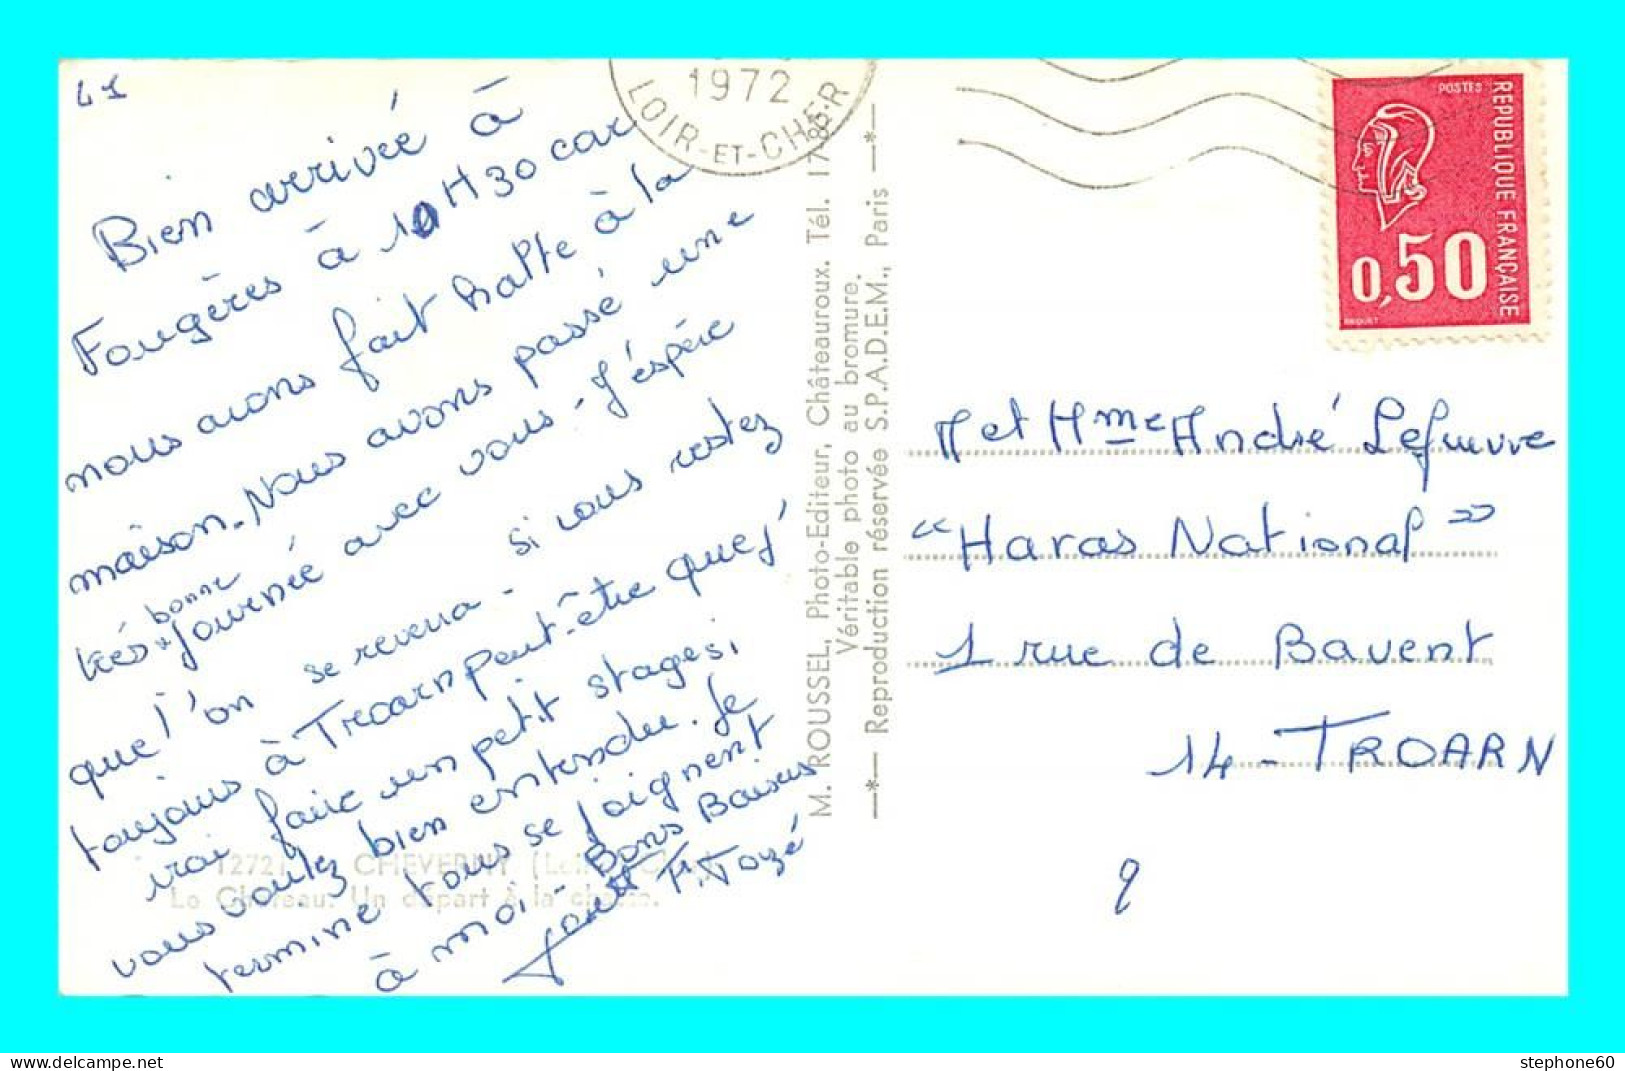 41
Bien arrivée à
Fougères à 10H30 car
nous avons fait halte à la
maison. Nous avons passé une
très bonne journée avec vous - J'éspére
que l'on se reverra - si vous restez
toujours à Troarn peut-être que j'
irai faire un petit stage si,
vous voulez bien entendu. Je
termine tous se joignent
à moi - Bons Baisers
F. Toyé
12721 CHEVERNY (Loir-et-Cher)
Le Château. Un départ à la chasse.
1972
LOIR-ET-CHER
M. ROUSSEL, Photo-Editeur, Châteauroux. Tél.
Véritable photo au bromure.
—*— Reproduction réservée S.P.A.D.E.M., Paris —*—
POSTES
REPUBLIQUE FRANÇAISE
0,50
BEQUET
M et Mme André Lefuvre
"Haras National"
1 rue de Bavent
14 - TROARN
www.delcampe.net
stephone60